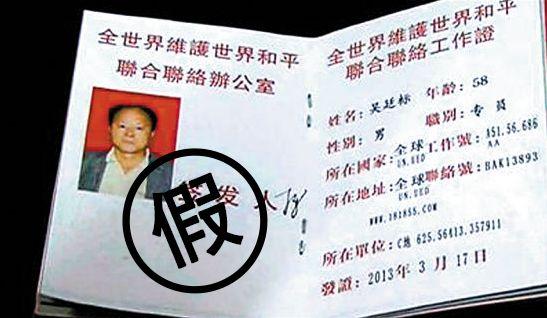 全世界維護世界和平
聯合聯絡辦公室
发人
假
全世界維護世界和平
聯合聯絡工作證
姓名：吴廷标 年齡：58
性别：男 職别：专員
所在國家：全球工作號：A51.56.686
UN.UED AA
所在地址：全球聯絡號：BAK13893
UN.UED
WWW.181855.COM
所在單位：C地 625.56413.357911
發證：2013年3月17日